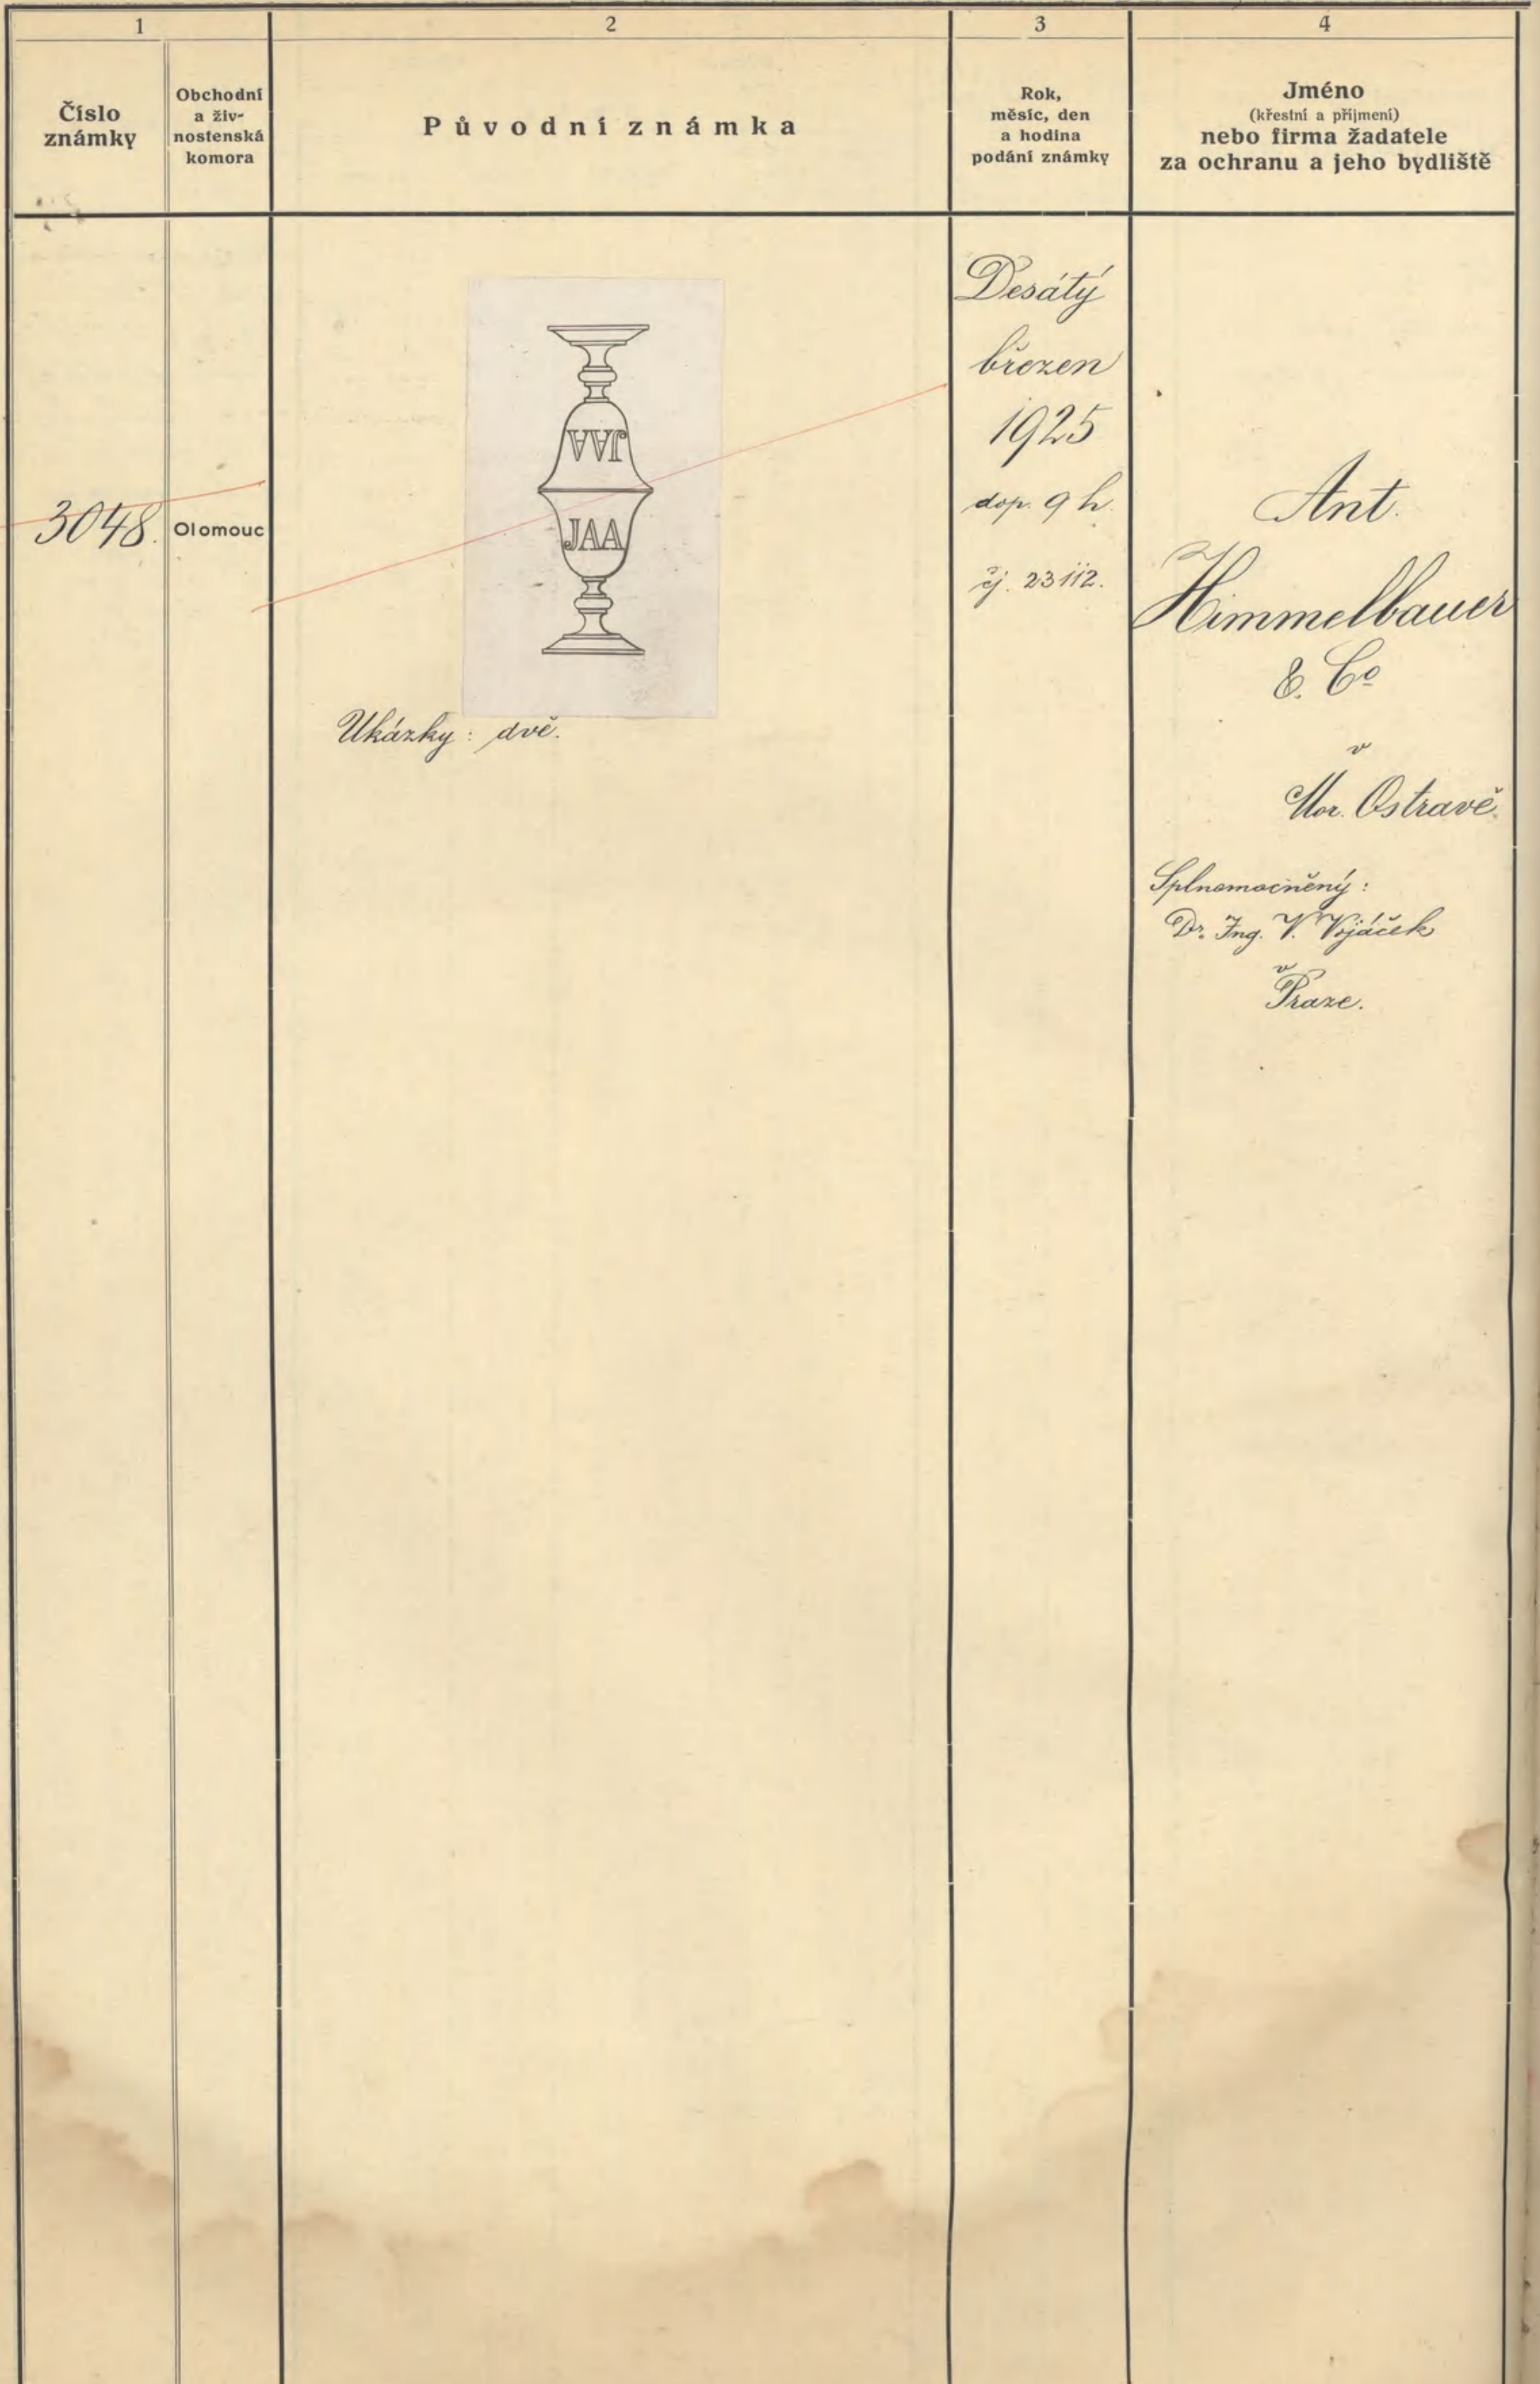 1
2
3
4
Číslo
známky
Obchodní
a živ-
nostenská
komora
Původní známka
Rok,
měsíc, den
a hodina
podání známky
Jméno
(křestní a příjmení)
nebo firma žadatele
za ochranu a jeho bydliště
3048.
Olomouc
JAA
JAA
Ukázky: dvě.
Desátý
březen
1925
dop. 9 h.
čj. 23112.
Ant.
Himmelbauer
& Co
v
Mor. Ostravě.
Splnomocněný:
Dr. Ing. V. Vojáček
v
Praze.